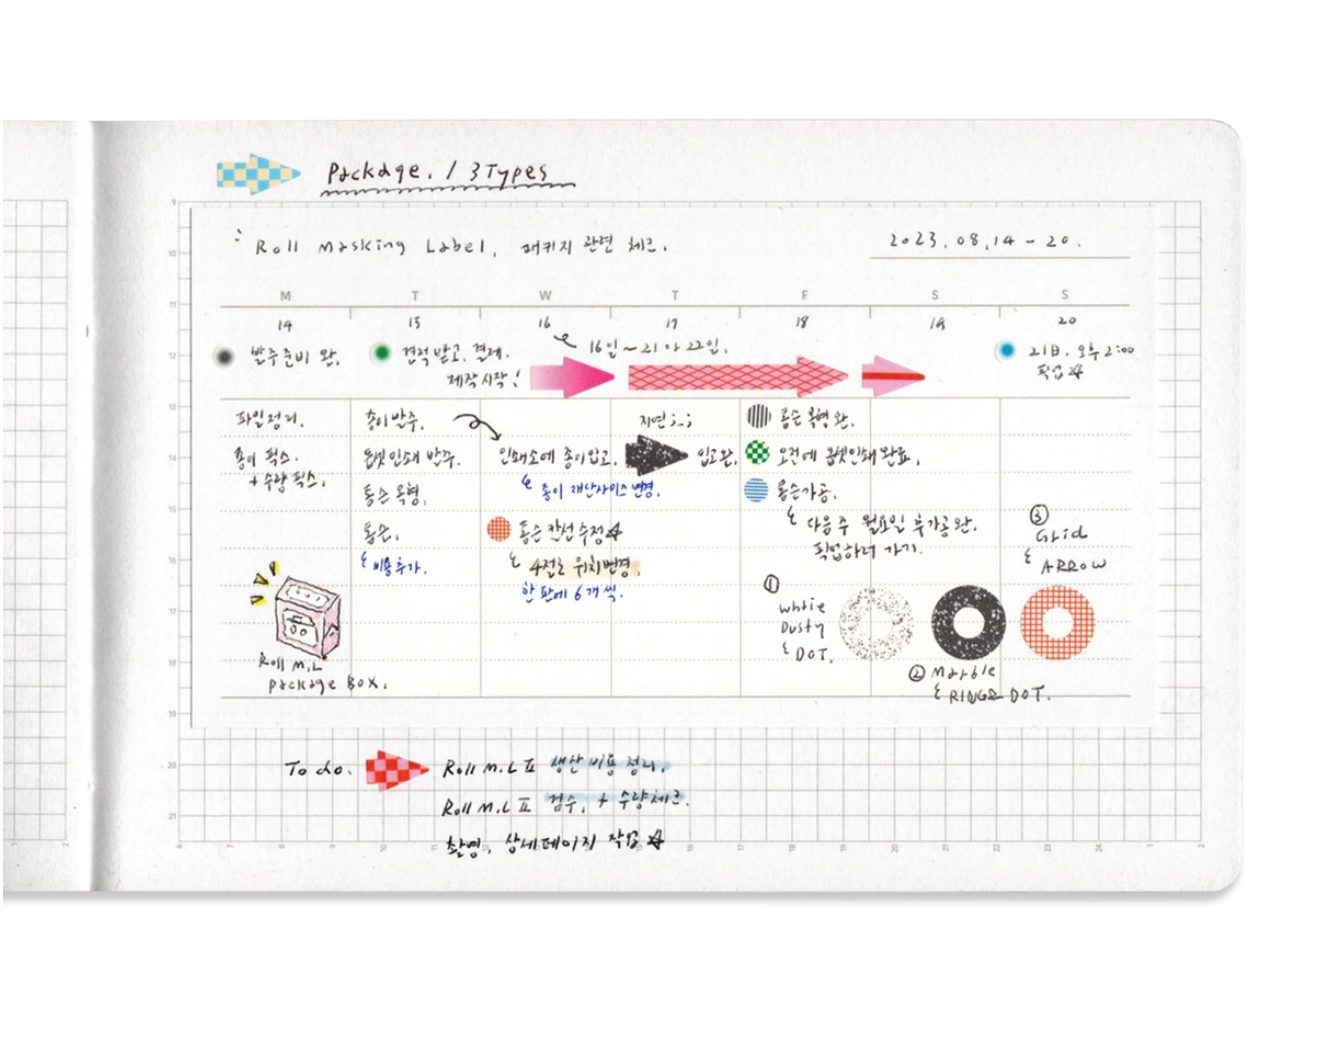 Package. / 3 Types
Roll Masking Label, 패키지 관련 체크.
2023.08.14 - 20.
M T W T F S S
14 15 16 17 18 19 20
발주준비 완.
견적 받고, 결제.
제작 시작!
16일 ~ 21 or 22일.
21日. 오후 2:00
픽업☆
파일정리.
종이 픽스.
+ 수량 픽스.
종이 발주.
옵셋인쇄 발주.
톰슨 목형.
톰슨.
비용추가.
인쇄소에 종이입고.
종이 재단사이즈 변경.
톰슨 칼선 수정☆
4절로 위치변경.
한 판에 6개씩.
지연;_;
입고완.
톰슨 목형 완.
오전에 옵셋인쇄 완료.
톰슨가공.
다음주 월요일 후가공 완.
픽업하러 가기.
①
White
Dusty
& DOT.
② Marble
& RING DOT.
③
Grid
& ARROW
Roll M.L
package Box.
To do.
Roll M.L II 생산 비용 정리.
Roll M.L II 검수, + 수량체크.
촬영, 상세페이지 작업☆
9
10
11
12
13
14
15
16
17
18
19
20
21